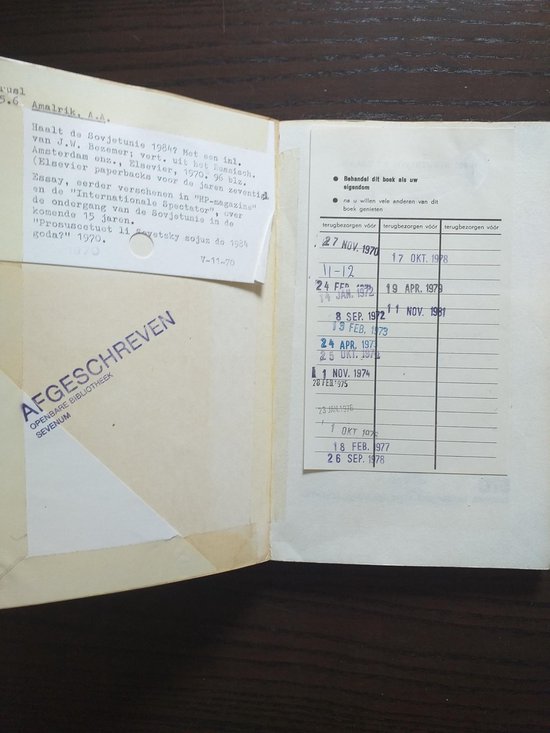 5.6 Amalrik, A.A.
Haalt de Sovjetunie 1984? Met een inl.
van J.W. Bezemer; vert. uit het Russisch.
Amsterdam enz., Elsevier, 1970. 96 blz.
(Elsevier paperbacks voor de jaren zeventig)
Essay, eerder verschenen in "HP-magazine"
en de "Internationale Spectator", over
de ondergang van de Sovjetunie in de
komende 15 jaren.
"Prosuscetuct li Sovetsky sojuz do 1984
goda?" 1970.
7-11-70
AFGESCHREVEN
OPENBARE BIBLIOTHEEK
SEVENUM
● Behandel dit boek als uw
eigendom
● na u willen vele anderen van dit
boek genieten
terugbezorgen vóór terugbezorgen vóór terugbezorgen vóór
27 NOV. 1970
17 OKT. 1978
11-12
24 FEB. 1971
19 APR. 1979
14 JAN. 1972
11 NOV. 1981
8 SEP. 1972
13 FEB. 1973
24 APR. 1973
25 OKT.
11 NOV. 1974
20 FEB. 1975
23 JAN. 1976
1 OKT
18 FEB. 1977
26 SEP. 1978